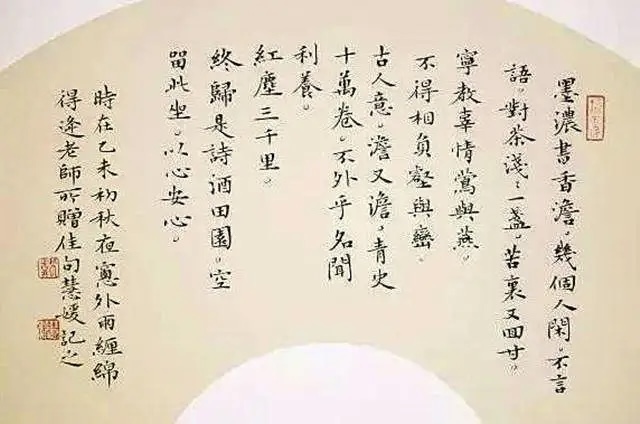 墨濃書香澹。幾個人閑。不言
語。對茶淺〻一盞。苦裏又回甘。
寧教辜情鶯與燕。
不得相負壑與巒。
古人意。澹又澹。青史
十萬卷。不外乎名聞
利養。
紅塵三千里。
終歸是詩酒田園。空
留此坐。以心安心。
時在乙未初秋夜窻外雨纏綿
得逢老師所贈佳句慧媛記之